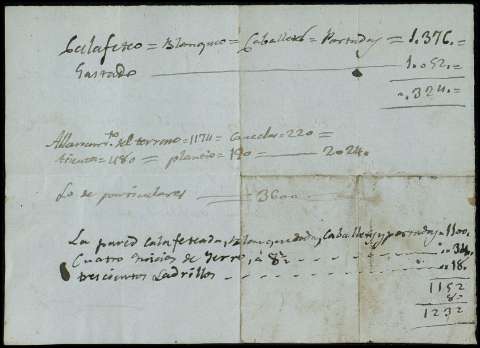 Calafeteo = Blanqueo = Caballete = Portadas = 1.376.=
Gastado 1.052.=
".324.=
Allanam.to del terreno = 1174 = = 220 =
= 480 = plancio = 150 = 2024.
Lo de particulares 3600
La pared Calafeteada, Blanqueada, Caballete, y portadas " 1100.
Cuatro de Yerro, á 8½ " 34.
trescientos Ladrillos " 18.
1152
80
1232